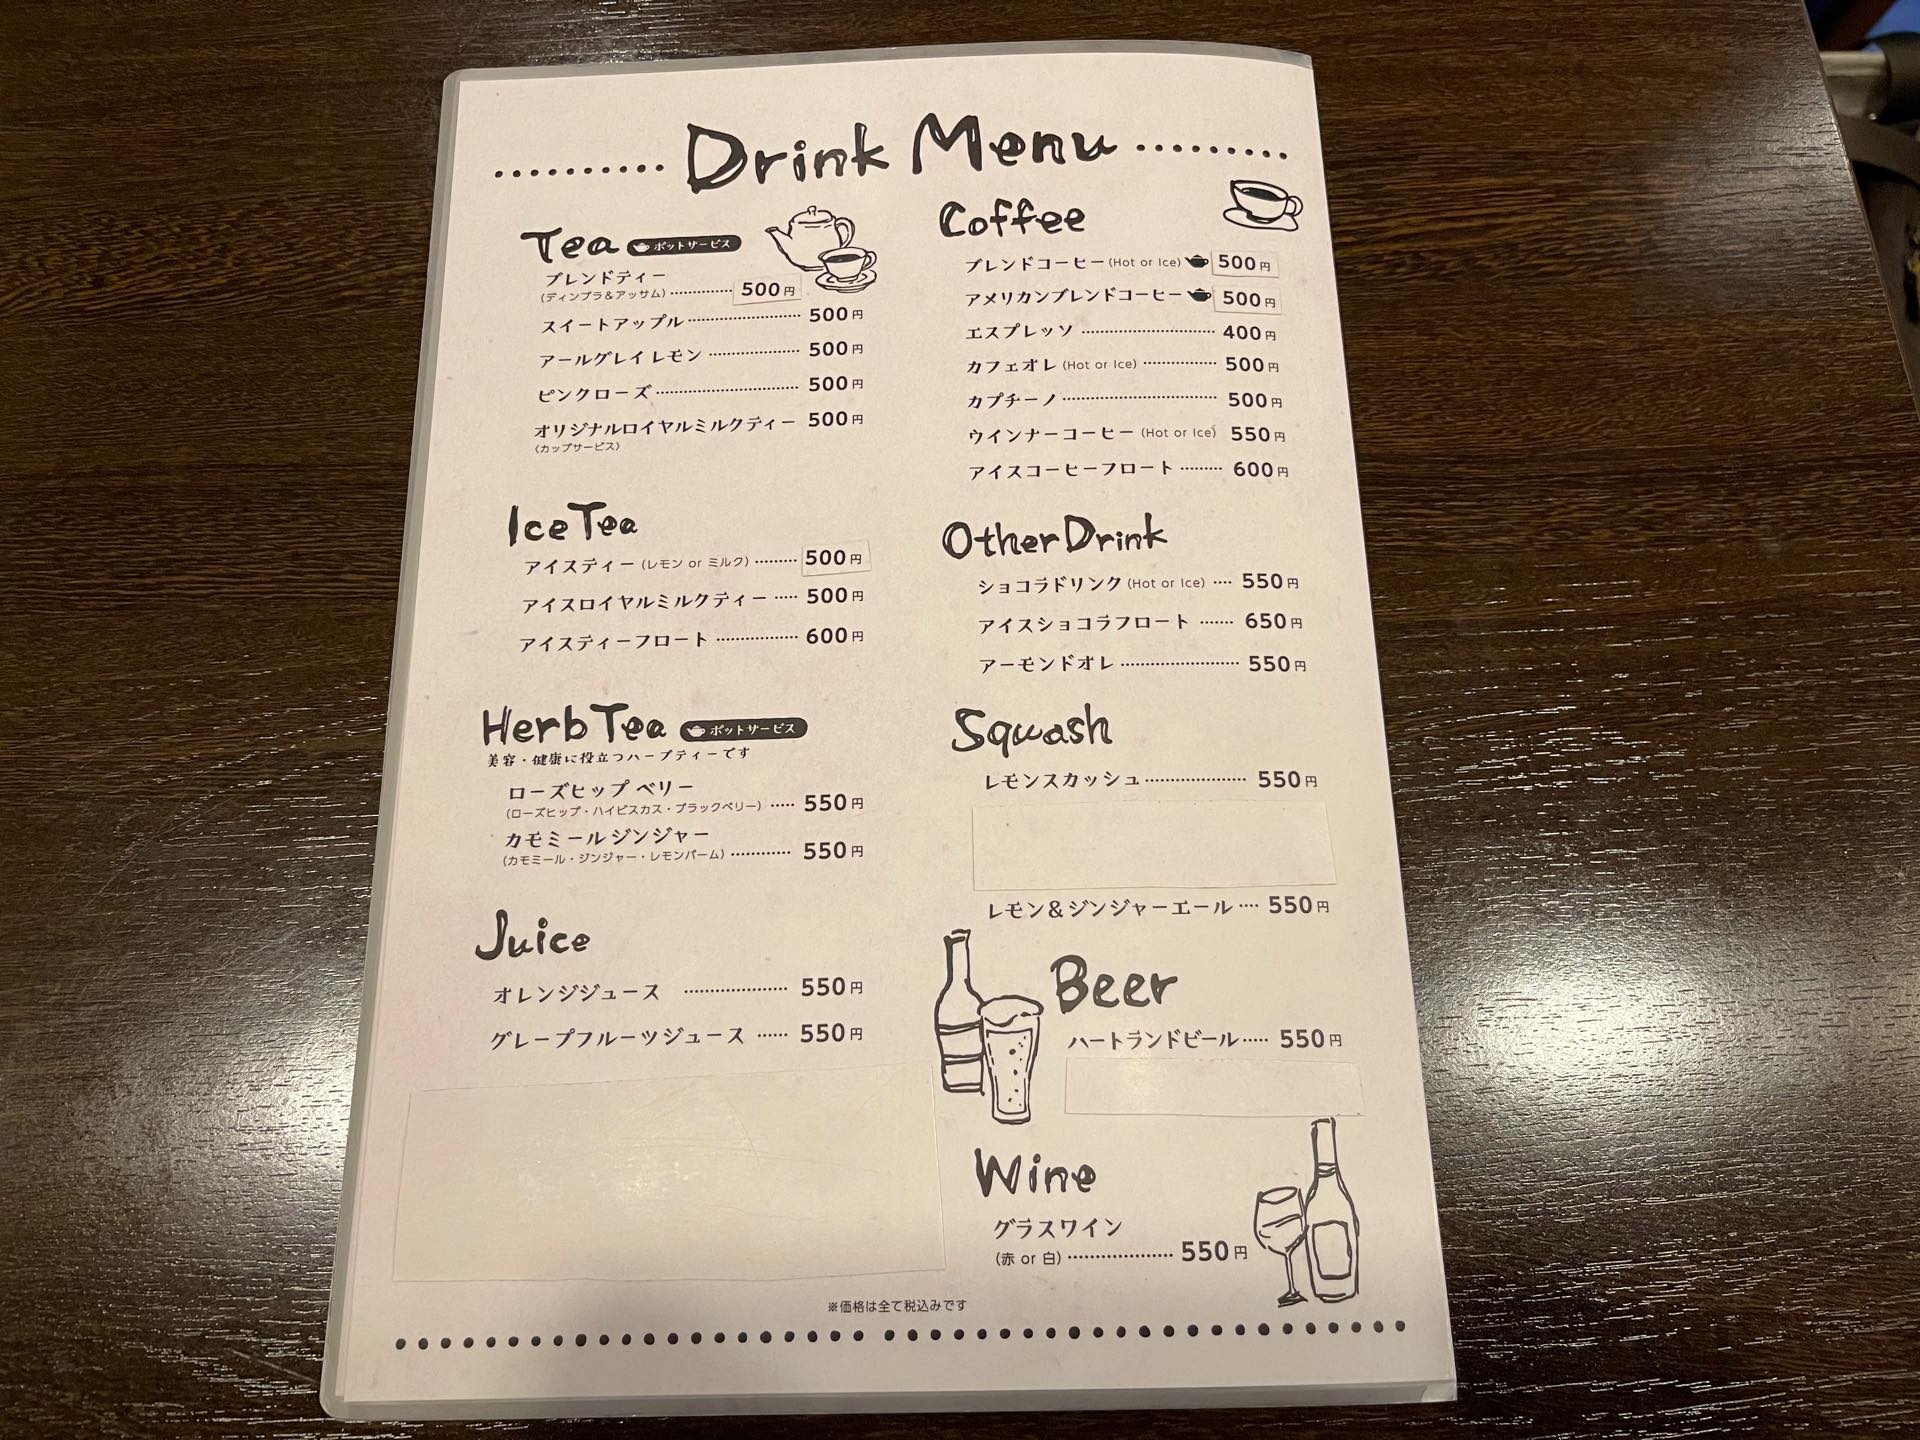 Drink Menu
Tea ポットサービス
ブレンドティー
(ディンブラ&アッサム) 500円
スイートアップル 500円
アールグレイレモン 500円
ピンクローズ 500円
オリジナルロイヤルミルクティー 500円
(カップサービス)
Ice Tea
アイスティー (レモン or ミルク) 500円
アイスロイヤルミルクティー 500円
アイスティーフロート 600円
Herb Tea ポットサービス
美容・健康に役立つハーブティーです
ローズヒップ ベリー
(ローズヒップ・ハイビスカス・ブラックベリー) 550円
カモミール ジンジャー
(カモミール・ジンジャー・レモンバーム) 550円
Juice
オレンジジュース 550円
グレープフルーツジュース 550円
Coffee
ブレンドコーヒー (Hot or Ice) 500円
アメリカンブレンドコーヒー 500円
エスプレッソ 400円
カフェオレ (Hot or Ice) 500円
カプチーノ 500円
ウインナーコーヒー (Hot or Ice) 550円
アイスコーヒーフロート 600円
Other Drink
ショコラドリンク (Hot or Ice) 550円
アイスショコラフロート 650円
アーモンドオレ 550円
Squash
レモンスカッシュ 550円
レモン&ジンジャーエール 550円
Beer
ハートランドビール 550円
Wine
グラスワイン
(赤 or 白) 550円
※価格は全て税込みです